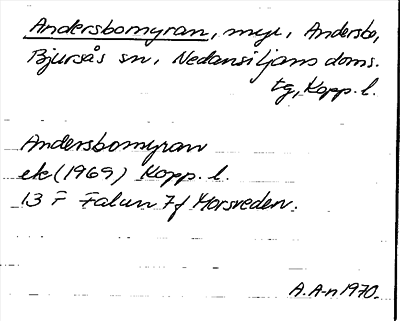 Andersbomyran, myr, Andersbo,
Bjursås sn, Nedansiljans doms.
tg, Kopp. l.
Andersbomyran
ek (1969) Kopp. l.
13 F Falun 7f Morsveden.
A. A-n 1970.